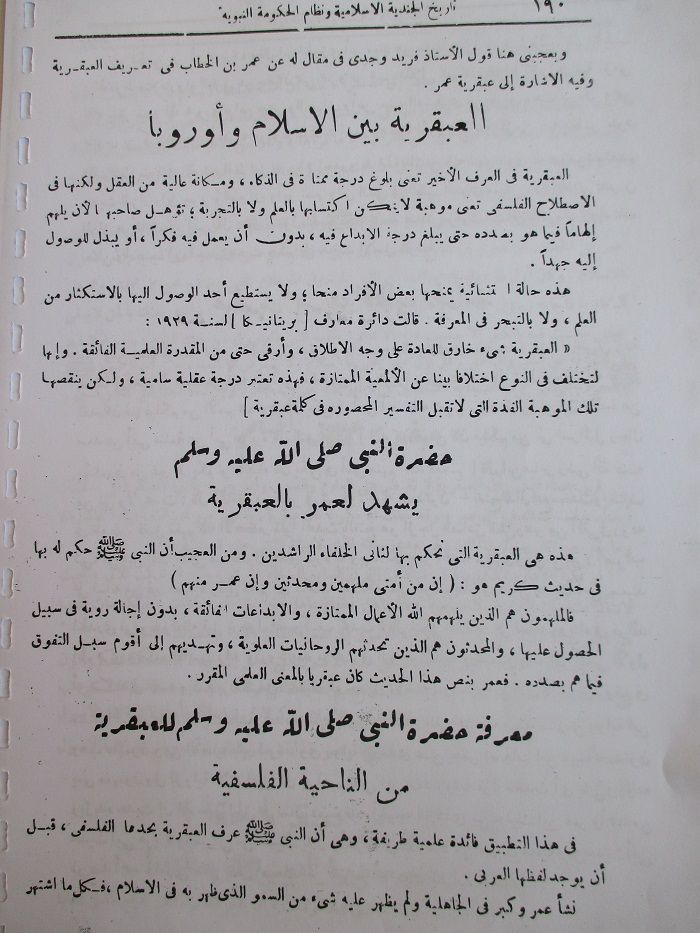 ١٩٠
تاريخ الجندية الاسلامية ونظام الحكومة النبوية
ويعجبنى هنا قول الأستاذ فريد وجدى فى مقال له عن عمر بن الخطاب فى تعريف العبقرية
وفيه الاشارة إلى عبقرية عمر .
العبقرية بين الاسلام وأوروبا
العبقرية فى العرف الأخير تعنى بلوغ درجة ممتازة فى الذكاء ، ومكانة عالية من العقل ولكنها فى
الاصطلاح الفلسفى تعنى موهبة لايمكن اكتسابها بالعلم ولا بالتجربة ؛ تؤهل صاحبها الأن يلهم
إلهاماً فيما هو بصدده حتى يبلغ درجة الابداع فيه ، بدون أن يعمل فيه فكراً ، أو يبذل للوصول
إليه جهداً .
هذه حالة استثنائية يمنحها بعض الأفراد منحا ؛ ولا يستطيع أحد الوصول اليها بالاستكثار من
العلم ، ولا بالتبحر فى المعرفة . قالت دائرة معارف [ بريتانيكا ] لسنة ١٩٢٩ :
« العبقرية شىء خارق للعادة على وجه الاطلاق ، وأرقى حتى من المقدرة العلمية الفائقة . وإنها
لتختلف فى النوع اختلافا بينا عن الألمعية الممتازة ، فهذه تعتبر درجة عقلية سامية ، ولكن ينقصها
تلك الموهبة الفذة التى لاتقبل التفسير المحصوره فى كلمة عبقرية ]
حضرة النبى صلى الله عليه وسلم
يشهد لعمر بالعبقرية
هذه هى العبقرية التى نحكم بها لثانى الخلفاء الراشدين . ومن العجيب أن النبى ﷺ حكم له بها
فى حديث كريم هو : ( إن من أمتى ملهمين ومحدثين وإن عمر منهم )
فالملهمون هم الذين يلهمهم الله الأعمال الممتازة ، والابداعات الفائقة ، بدون إجالة روية فى سبيل
الحصول عليها ، والمحدثون هم الذين تحدثهم الروحانيات العلوية ، وتهديهم إلى أقوم سبل التفوق
فيما هم بصدده . فعمر بنص هذا الحديث كان عبقريا بالمعنى العلمى المقرر .
معرفة حضرة النبى صلى الله عليه وسلم للعبقرية
من الناحية الفلسفية
فى هذا التطبيق فائدة علمية طريفة ، وهى أن النبى ﷺ عرف العبقرية بحدها الفلسفى ، قبل
أن يوجد لفظها العربى .
نشأ عمر وكبر فى الجاهلية ولم يظهر عليه شىء من السمو الذى ظهر به فى الاسلام ، فكل ما اشتهر